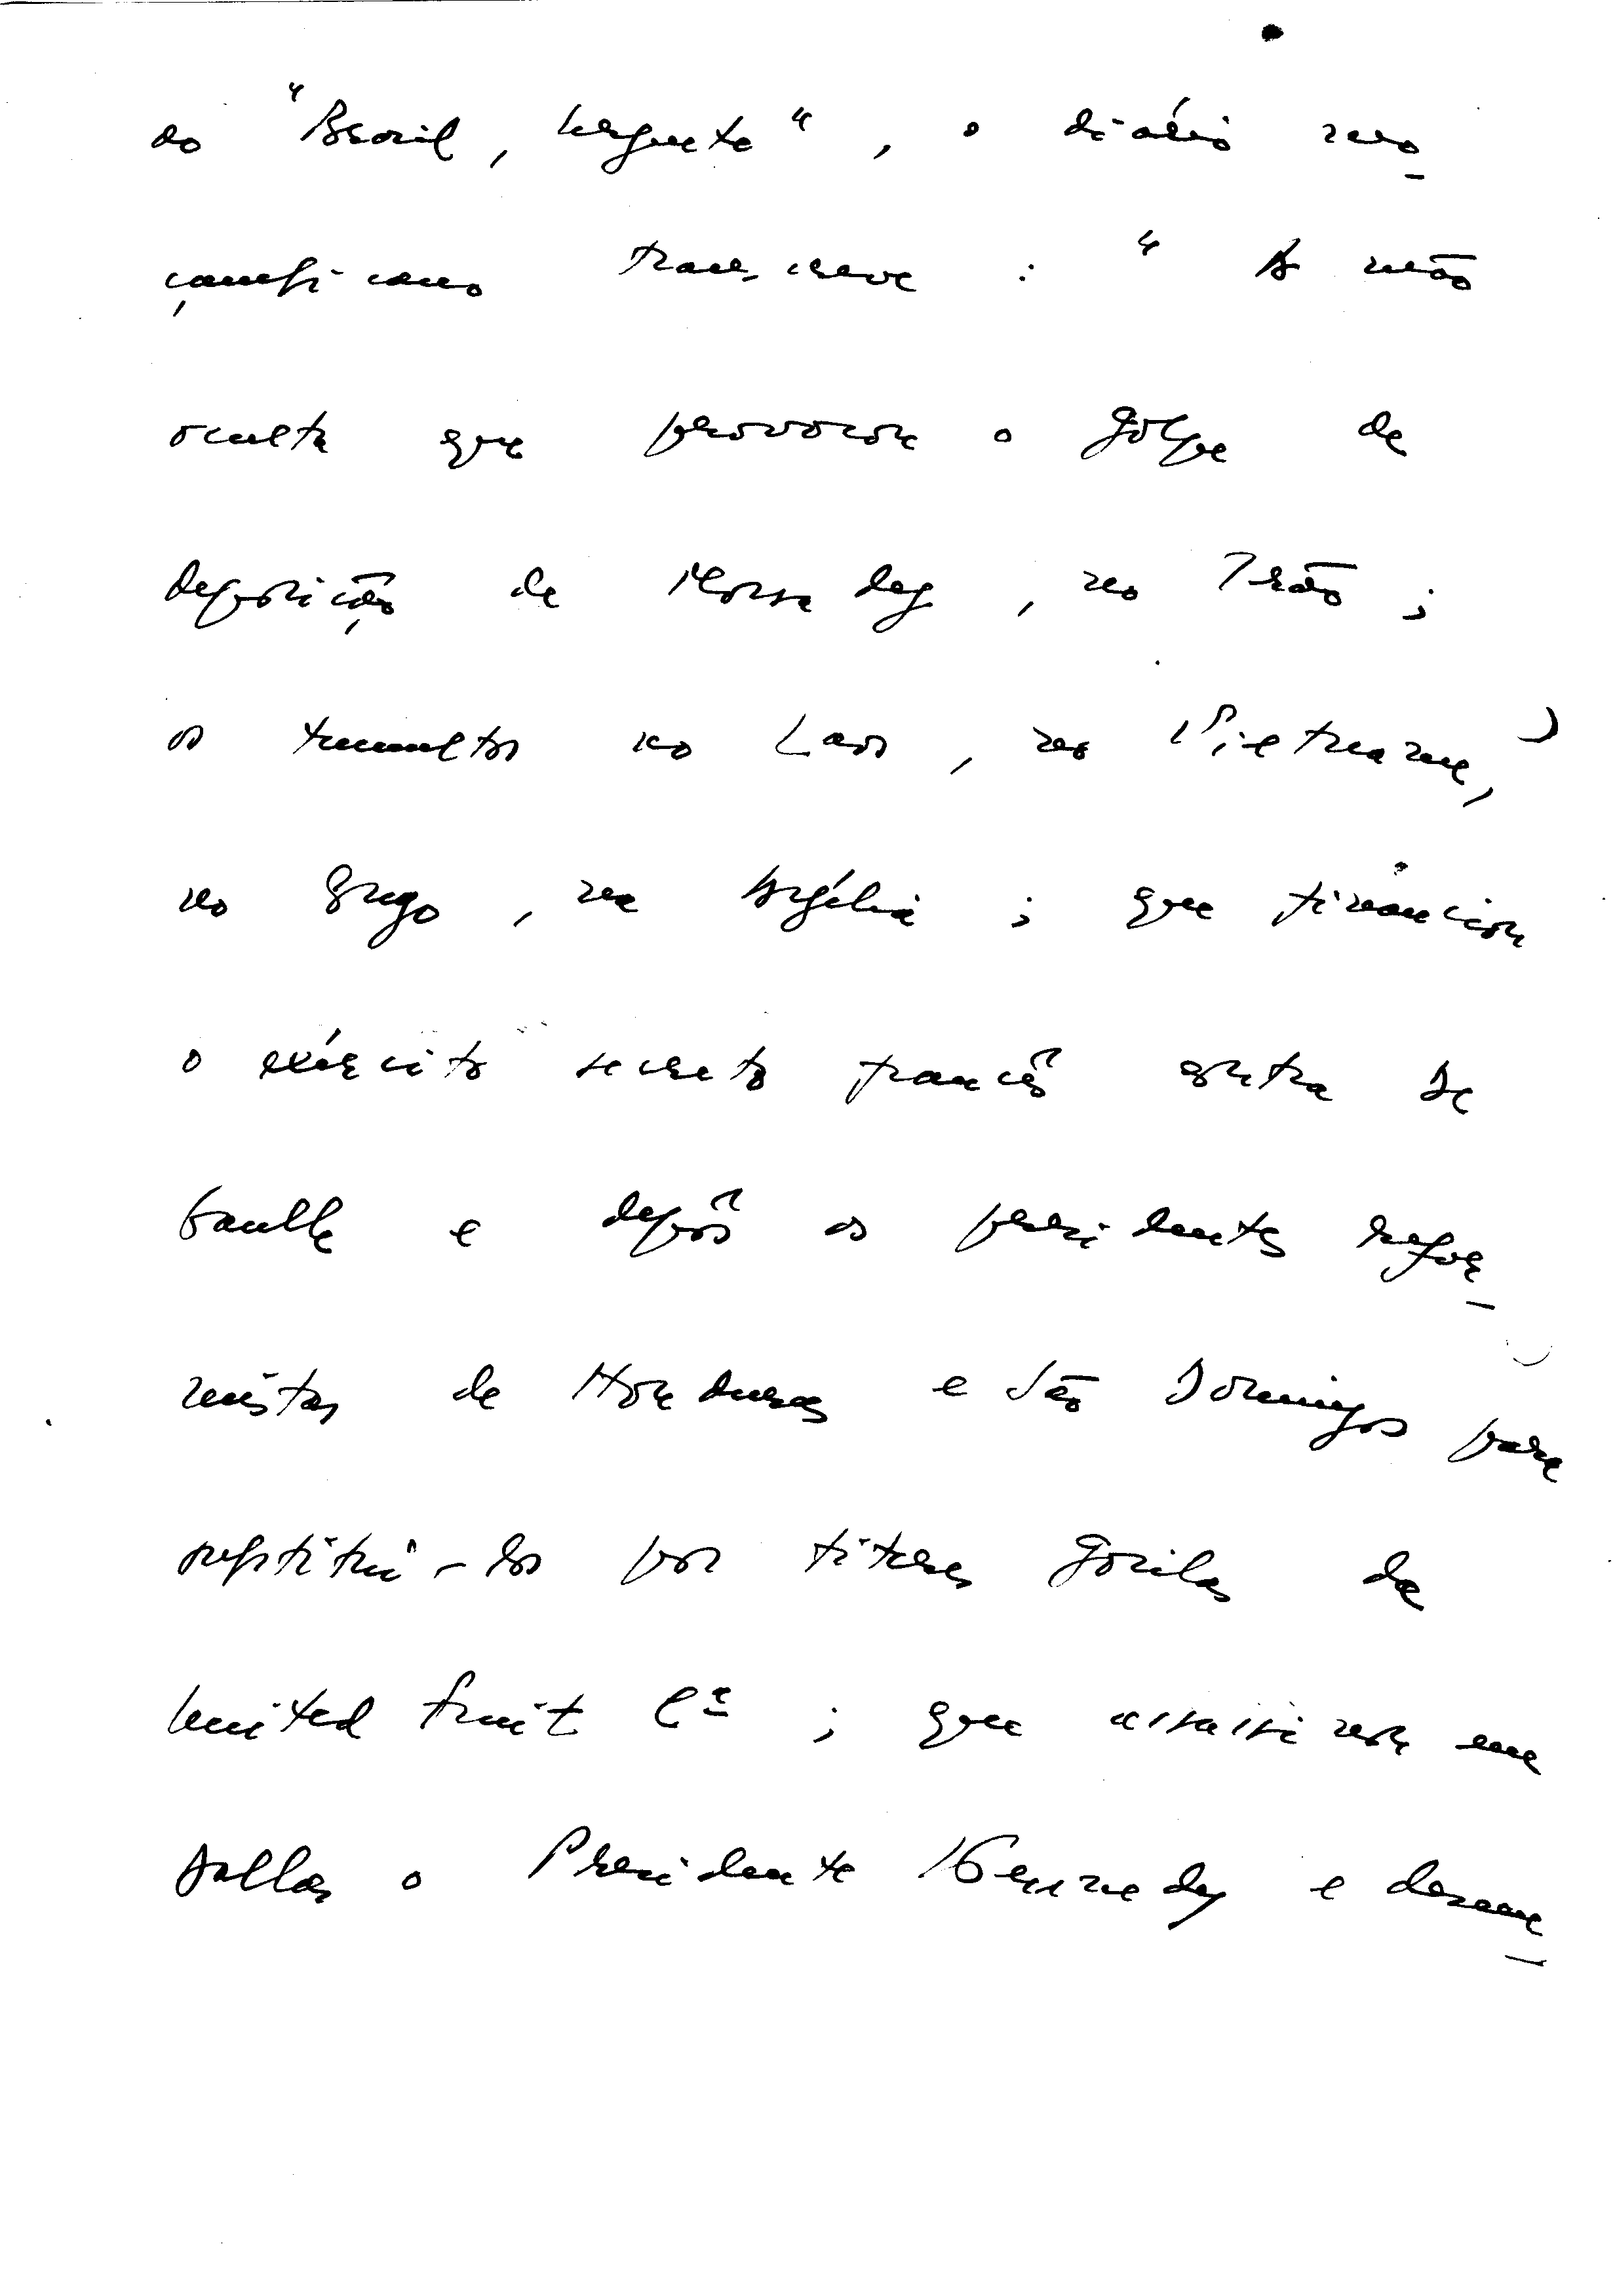 do "Brasil, Urgente", o diário mo
çambicano transcreve : "A mão
oculta que provocou o golpe de
deposição de Mossadeg, no Irão ;
os tumultos no Laos, no Vietname,
no Congo, na Argélia ; que financiou
o exército secreto francês contra De
Gaulle e depôs os presidentes refor_
mistas de Honduras e São Domingos para
substituí-los por títeres gorilas da
United Fruit Cª ; que assassinou em
Dallas o Presidente Kennedy e desem_